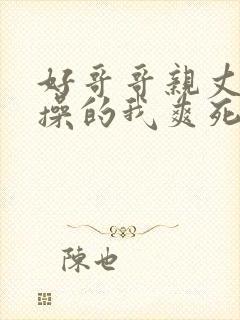 好哥哥亲丈
操的我爽死
陈也